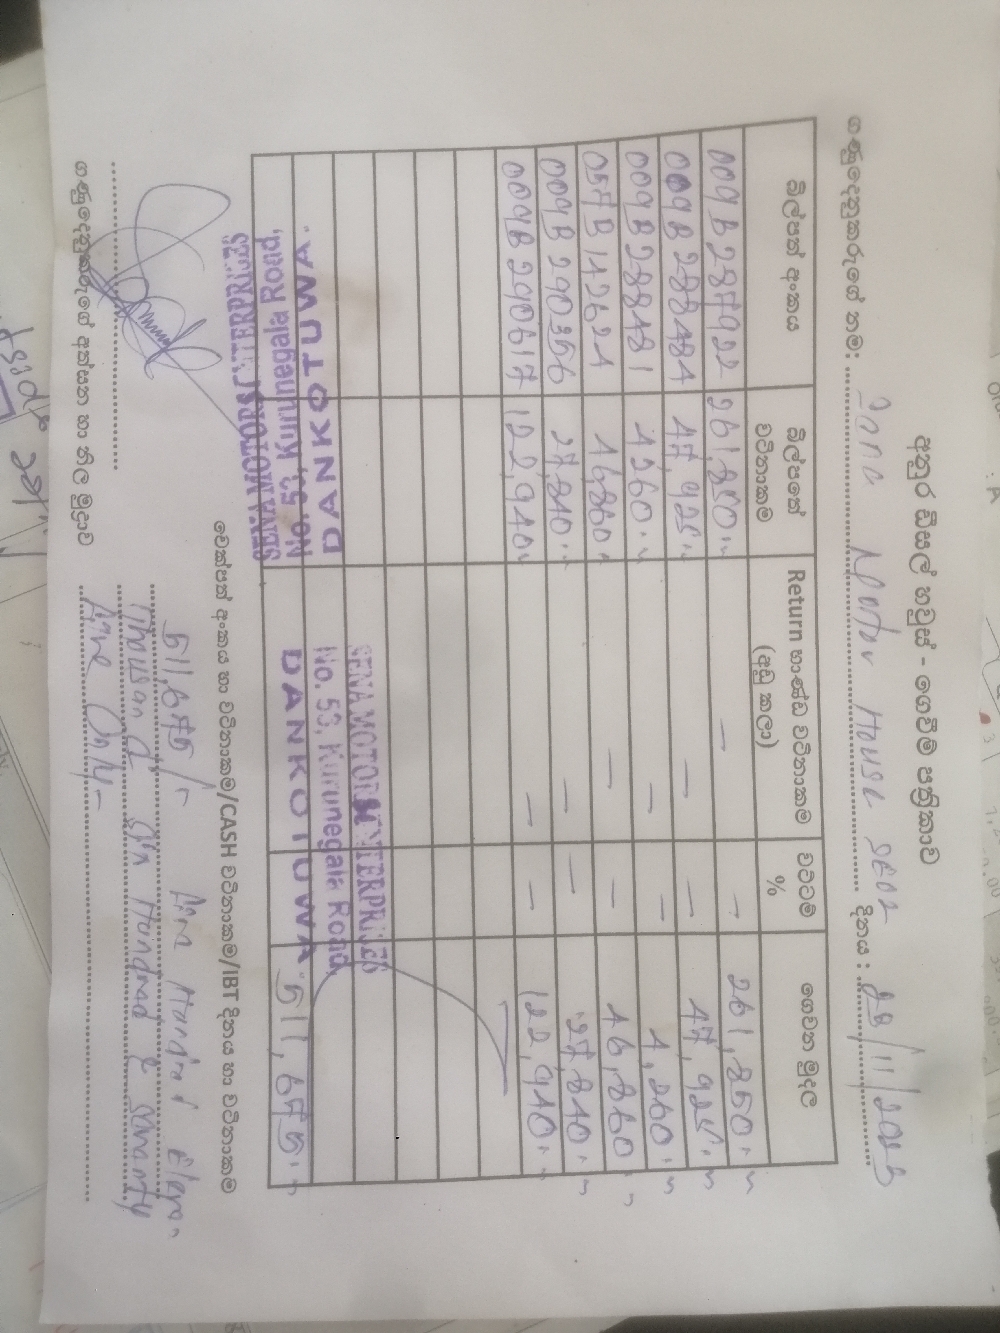 අනුර ඩීසල් හවුස් - ගෙවීම් පත්‍රිකාව
ගණුදෙනුකරුගේ නම: Motor House දිනය: 28/11/
බිල්පත් අංකය බිල්පතේ වටිනාකම Return භාණ්ඩ වටිනාකම (අඩු කලා) වට්ටම් % ගෙවන මුදල
009B287922 261,850 — — 261,850
009B288484 47,925 — — 47,925
009B288481 4260 — — 4,260
057B142624 46860 — — 46,860
009B290356 27,840 — — 27,840
009B290617 122,940 — — 122,940
511,675
SENA MOTOR ENTERPRISES
No. 53, Kurunegala Road,
DANKOTUWA.
SENA MOTOR ENTERPRISES
No. 53, Kurunegala Road,
DANKOTUWA
චෙක්පත් අංකය හා වටිනාකම/CASH වටිනාකම/IBT දිනය හා වටිනාකම
511,675/- Five Hundred Eleven
Thousand Six Hundred & Seventy
Five Only-
ගණුදෙනුකරුගේ අත්සන හා නිල මුද්‍රාව